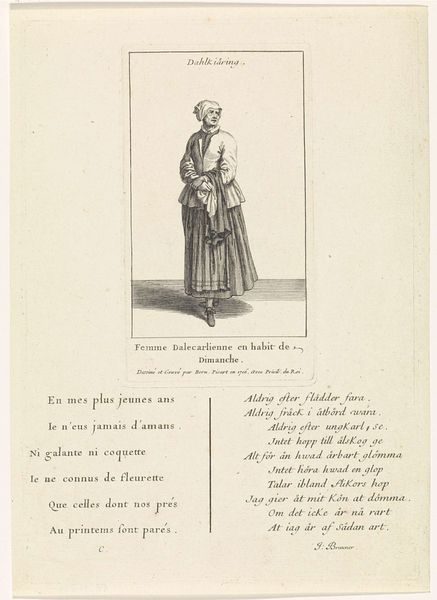 Dahlkiäring.
Femme Dalecarlienne en habit de
Dimanche.
Dessiné et Gravé par Bern. Picart en 1706. Avec Privil. du Roi.
En mes plus jeunes ans
Ie n'eus jamais d'amans.
Ni galante ni coquette
Ie ne connus de fleurette
Que celles dont nos prés
Au printems sont parés.
C.
Aldrig efter flådder fara.
Aldrig fråck i åtbörd wara.
Aldrig efter ungkarl se.
Intet hopp till ålskog ge
Alt för ån hwad årbart glömma
Intet höra hwad en glop
Talar ibland slikors hop
Jag gier åt mit kön at dömma.
Om det icke år nå rart
At iag år af sådan art.
J: Brenner